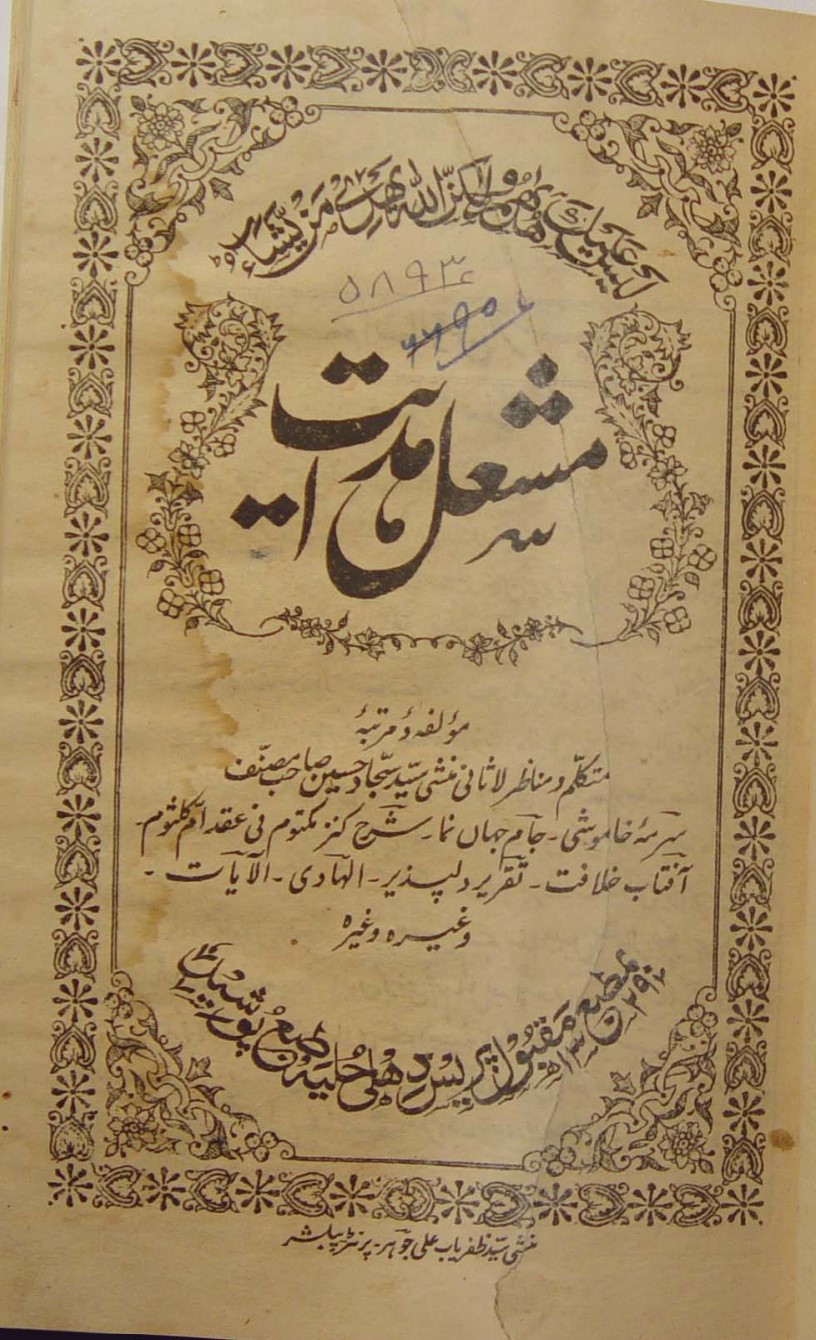 لَيْسَ عَلَيْكَ هُدٰىهُمْ وَلٰكِنَّ اللّٰهَ يَهْدِيْ مَنْ يَّشَآءُ ط
۵۸۹۳
مشعل ہدایت
مؤلفہٴ و مرتبہٴ
متکلّم و مناظر لاثانی منشی سیّد سجّاد حسین صاحب مصنّف
سرمۂ خاموشی ۔ جام جہاں نما ۔ شرح کنز مکتوم فی عقد ام کلثوم ۔
آفتاب خلافت ۔ تقریر دلپذیر ۔ الہادی ۔ الآیات ۔
وغیرہ وغیرہ
مطبع مقبول پریس دہلی حلیہ طبع پوشید
منشی سیّد ظفریاب علی جوہر ۔ پرنٹر پبلشر